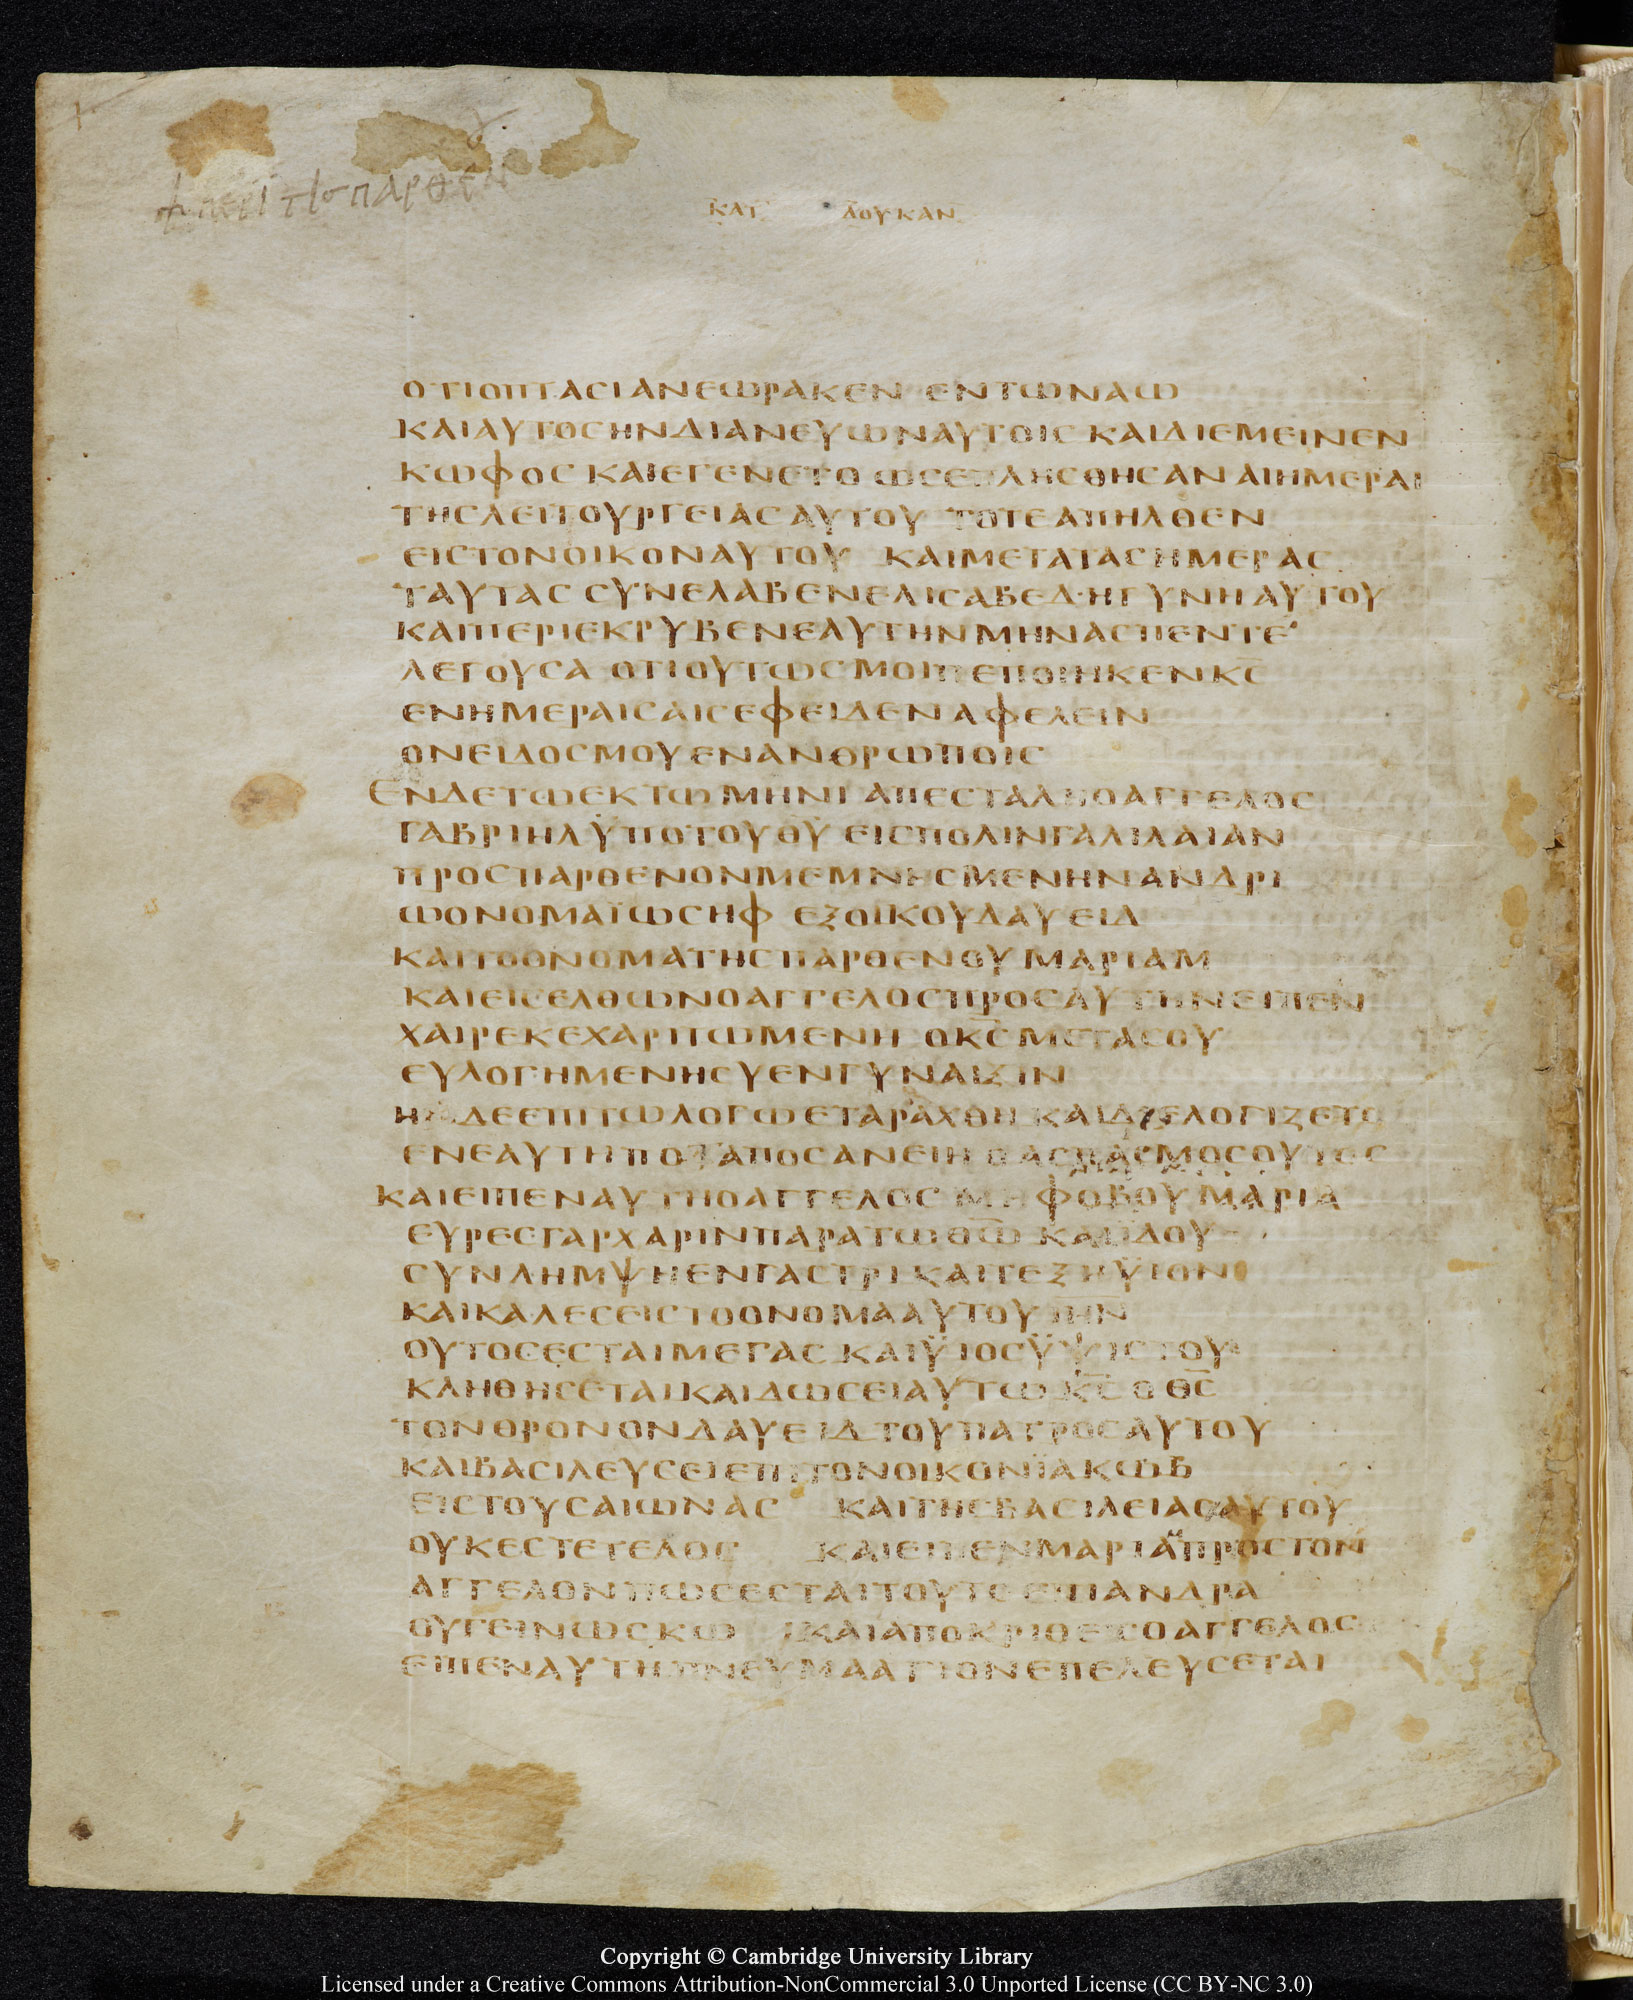 ΚΑΤ ΛΟΥΚΑΝ
ΟΤΙΟΠΤΑСΙΑΝΕΩΡΑΚΕΝ ΕΝΤΩΝΑΩ
ΚΑΙΑΥΤΟСΗΝΔΙΑΝΕΥΩΝΑΥΤΟΙС ΚΑΙΔΙΕΜΕΙΝΕΝ
ΚΩΦΟС ΚΑΙΕΓΕΝΕΤΟ ΩСΕΠΛΗСΘΗСΑΝ ΑΙΗΜΕΡΑΙ
ΤΗСΛΕΙΤΟΥΡΓΕΙΑСΑΥΤΟΥ ΤΟΤΕΑΠΗΛΘΕΝ
ΕΙСΤΟΝΟΙΚΟΝΑΥΤΟΥ ΚΑΙΜΕΤΑΤΑСΗΜΕΡΑС
ΤΑΥΤΑС СΥΝΕΛΑΒΕΝΕΛΙСΑΒΕΔ·ΗΓΥΝΗΑΥΤΟΥ
ΚΑΙΠΕΡΙΕΚΡΥΒΕΝΕΑΥΤΗΝΜΗΝΑСΠΕΝΤΕ
ΛΕΓΟΥСΑ ΟΤΙΟΥΤΩСΜΟΙΠΕΠΟΙΗΚΕΝΚ̅С̅
ΕΝΗΜΕΡΑΙСΑΙСΕΦΕΙΔΕΝΑΦΕΛΕΙΝ
ΟΝΕΙΔΟСΜΟΥΕΝΑΝΘΡΩΠΟΙС
ΕΝΔΕΤΩΕΚΤΩΜΗΝΙ ΑΠΕСΤΑΛΗΟΑΓΓΕΛΟС
ΓΑΒΡΙΗΛΫΠΟΤΟΥΘ̅Υ̅ ΕΙСΠΟΛΙΝΓΑΛΙΛΑΙΑΝ
ΠΡΟСΠΑΡΘΕΝΟΝΜΕΜΝΗСΜΕΝΗΝΑΝΔΡΙ
ΩΟΝΟΜΑΪΩСΗΦ ΕΞΟΙΚΟΥΔΑΥΕΙΔ
ΚΑΙΤΟΟΝΟΜΑΤΗСΠΑΡΘΕΝΟΥΜΑΡΙΑΜ
ΚΑΙΕΙСΕΛΘΩΝΟΑΓΓΕΛΟСΠΡΟСΑΥΤΗΝΕΙΠΕΝ
ΧΑΙΡΕΚΕΧΑΡΙΤΩΜΕΝΗ ΟΚ̅С̅ΜΕΤΑСΟΥ
ΕΥΛΟΓΗΜΕΝΗСΥΕΝΓΥΝΑΙΞΙΝ
ΗΔΕΕΠΙΤΩΛΟΓΩΕΤΑΡΑΧΘΗ ΚΑΙΔΙΕΛΟΓΙΖΕΤΟ
ΕΝΕΑΥΤΗΠΟΤΑΠΟСΑΝΕΙΗ ΟΑСΠΑСΜΟСΟΥΤΟС
ΚΑΙΕΙΠΕΝΑΥΤΗΟΑΓΓΕΛΟС ΜΗΦΟΒΟΥΜΑΡΙΑ
ΕΥΡΕСΓΑΡΧΑΡΙΝΠΑΡΑΤΩΘ̅Ω̅ ΚΑΙΪΔΟΥ
СΥΝΛΗΜΨΗΕΝΓΑСΤΡΙ ΚΑΙΤΕΞΗΫΙΟΝ
ΚΑΙΚΑΛΕСΕΙСΤΟΟΝΟΜΑΑΥΤΟΥΙ̅Η̅Ν̅
ΟΥΤΟСΕСΤΑΙΜΕΓΑС ΚΑΙΫΙΟСΫΨΙСΤΟΥ
ΚΛΗΘΗСΕΤΑΙΚΑΙΔΩСΕΙΑΥΤΩΚ̅С̅ΟΘ̅С̅
ΤΟΝΘΡΟΝΟΝΔΑΥΕΙΔΤΟΥΠΑΤΡΟСΑΥΤΟΥ
ΚΑΙΒΑСΙΛΕΥСΕΙΕΠΙΤΟΝΟΙΚΟΝΪΑΚΩΒ
ΕΙСΤΟΥСΑΙΩΝΑС ΚΑΙΤΗСΒΑСΙΛΕΙΑСΑΥΤΟΥ
ΟΥΚΕСΤΕΤΕΛΟС ΚΑΙΕΙΠΕΝΜΑΡΙΑΠΡΟСΤΟΝ
ΑΓΓΕΛΟΝΠΩСΕСΤΑΙΤΟΥΤΟΕΠΙΑΝΔΡΑ
ΟΥΓΕΙΝΩСΚΩ ΚΑΙΑΠΟΚΡΙΘΕΙСΟΑΓΓΕΛΟС
ΕΙΠΕΝΑΥΤΗΠΝΕΥΜΑΑΓΙΟΝΕΠΕΛΕΥСΕΤΑΙ
Copyright © Cambridge University Library
Licensed under a Creative Commons Attribution-NonCommercial 3.0 Unported License (CC BY-NC 3.0)